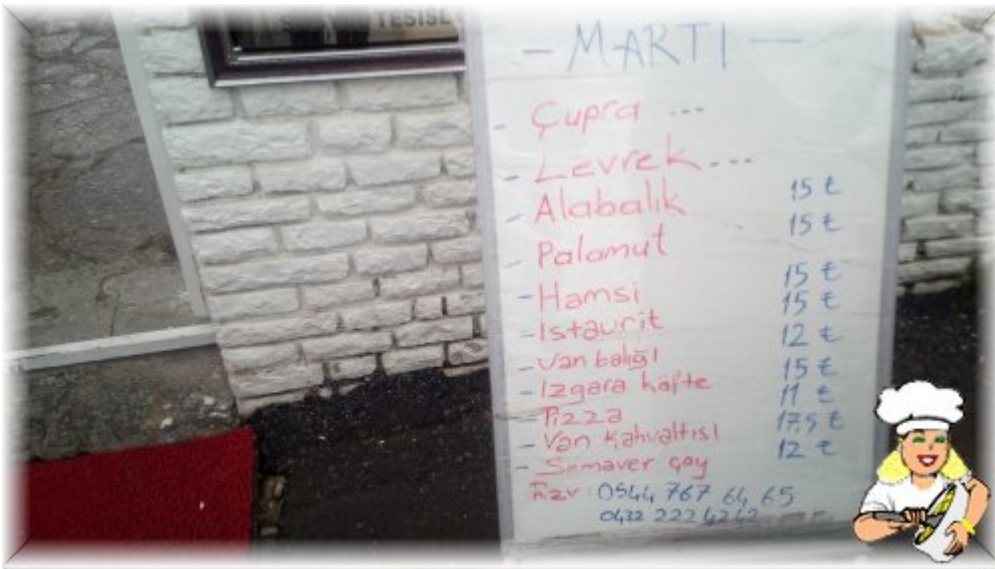 TESİSL
- MARTI -
- Çupra ...
- Levrek ...
- Alabalık 15 ₺
- Palamut 15 ₺
- Hamsi 15 ₺
- Istavrit 15 ₺
- Van balığı 12 ₺
- Izgara köfte 15 ₺
- Pizza 11 ₺
- Van kahvaltısı 17,5 ₺
- Semaver çay 12 ₺
Rzv: 0544 767 64 65
0432 222 42 42